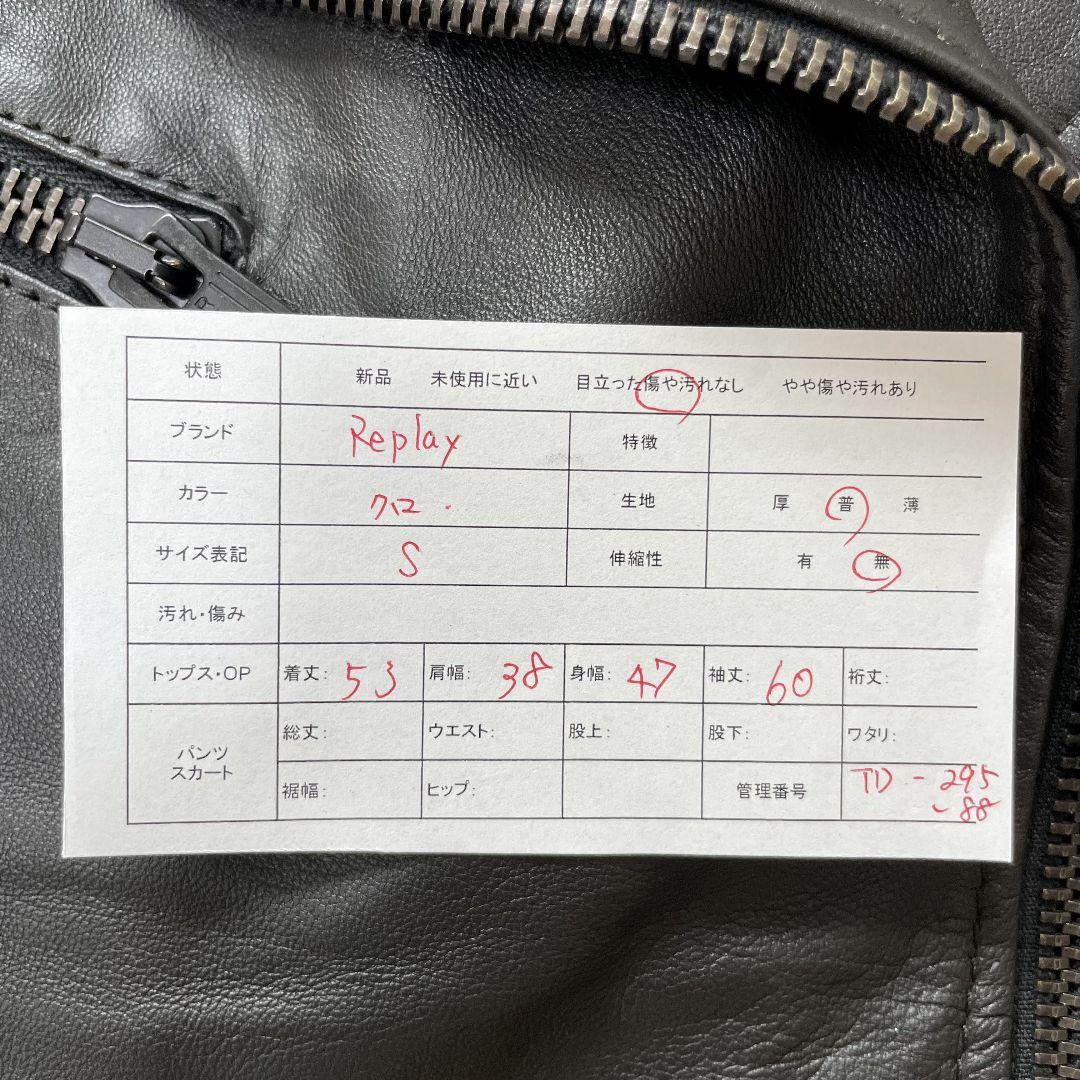 状態 新品 未使用に近い 目立った傷や汚れなし やや傷や汚れあり
ブランド Replay 特徴
カラー クロ 生地 厚 普 薄
サイズ表記 S 伸縮性 有 無
汚れ・傷み
トップス・OP 着丈: 53 肩幅: 38 身幅: 47 袖丈: 60 裄丈:
パンツ スカート
総丈: ウエスト: 股上: 股下: ワタリ:
裾幅: ヒップ: 管理番号 TD - 295
- 88